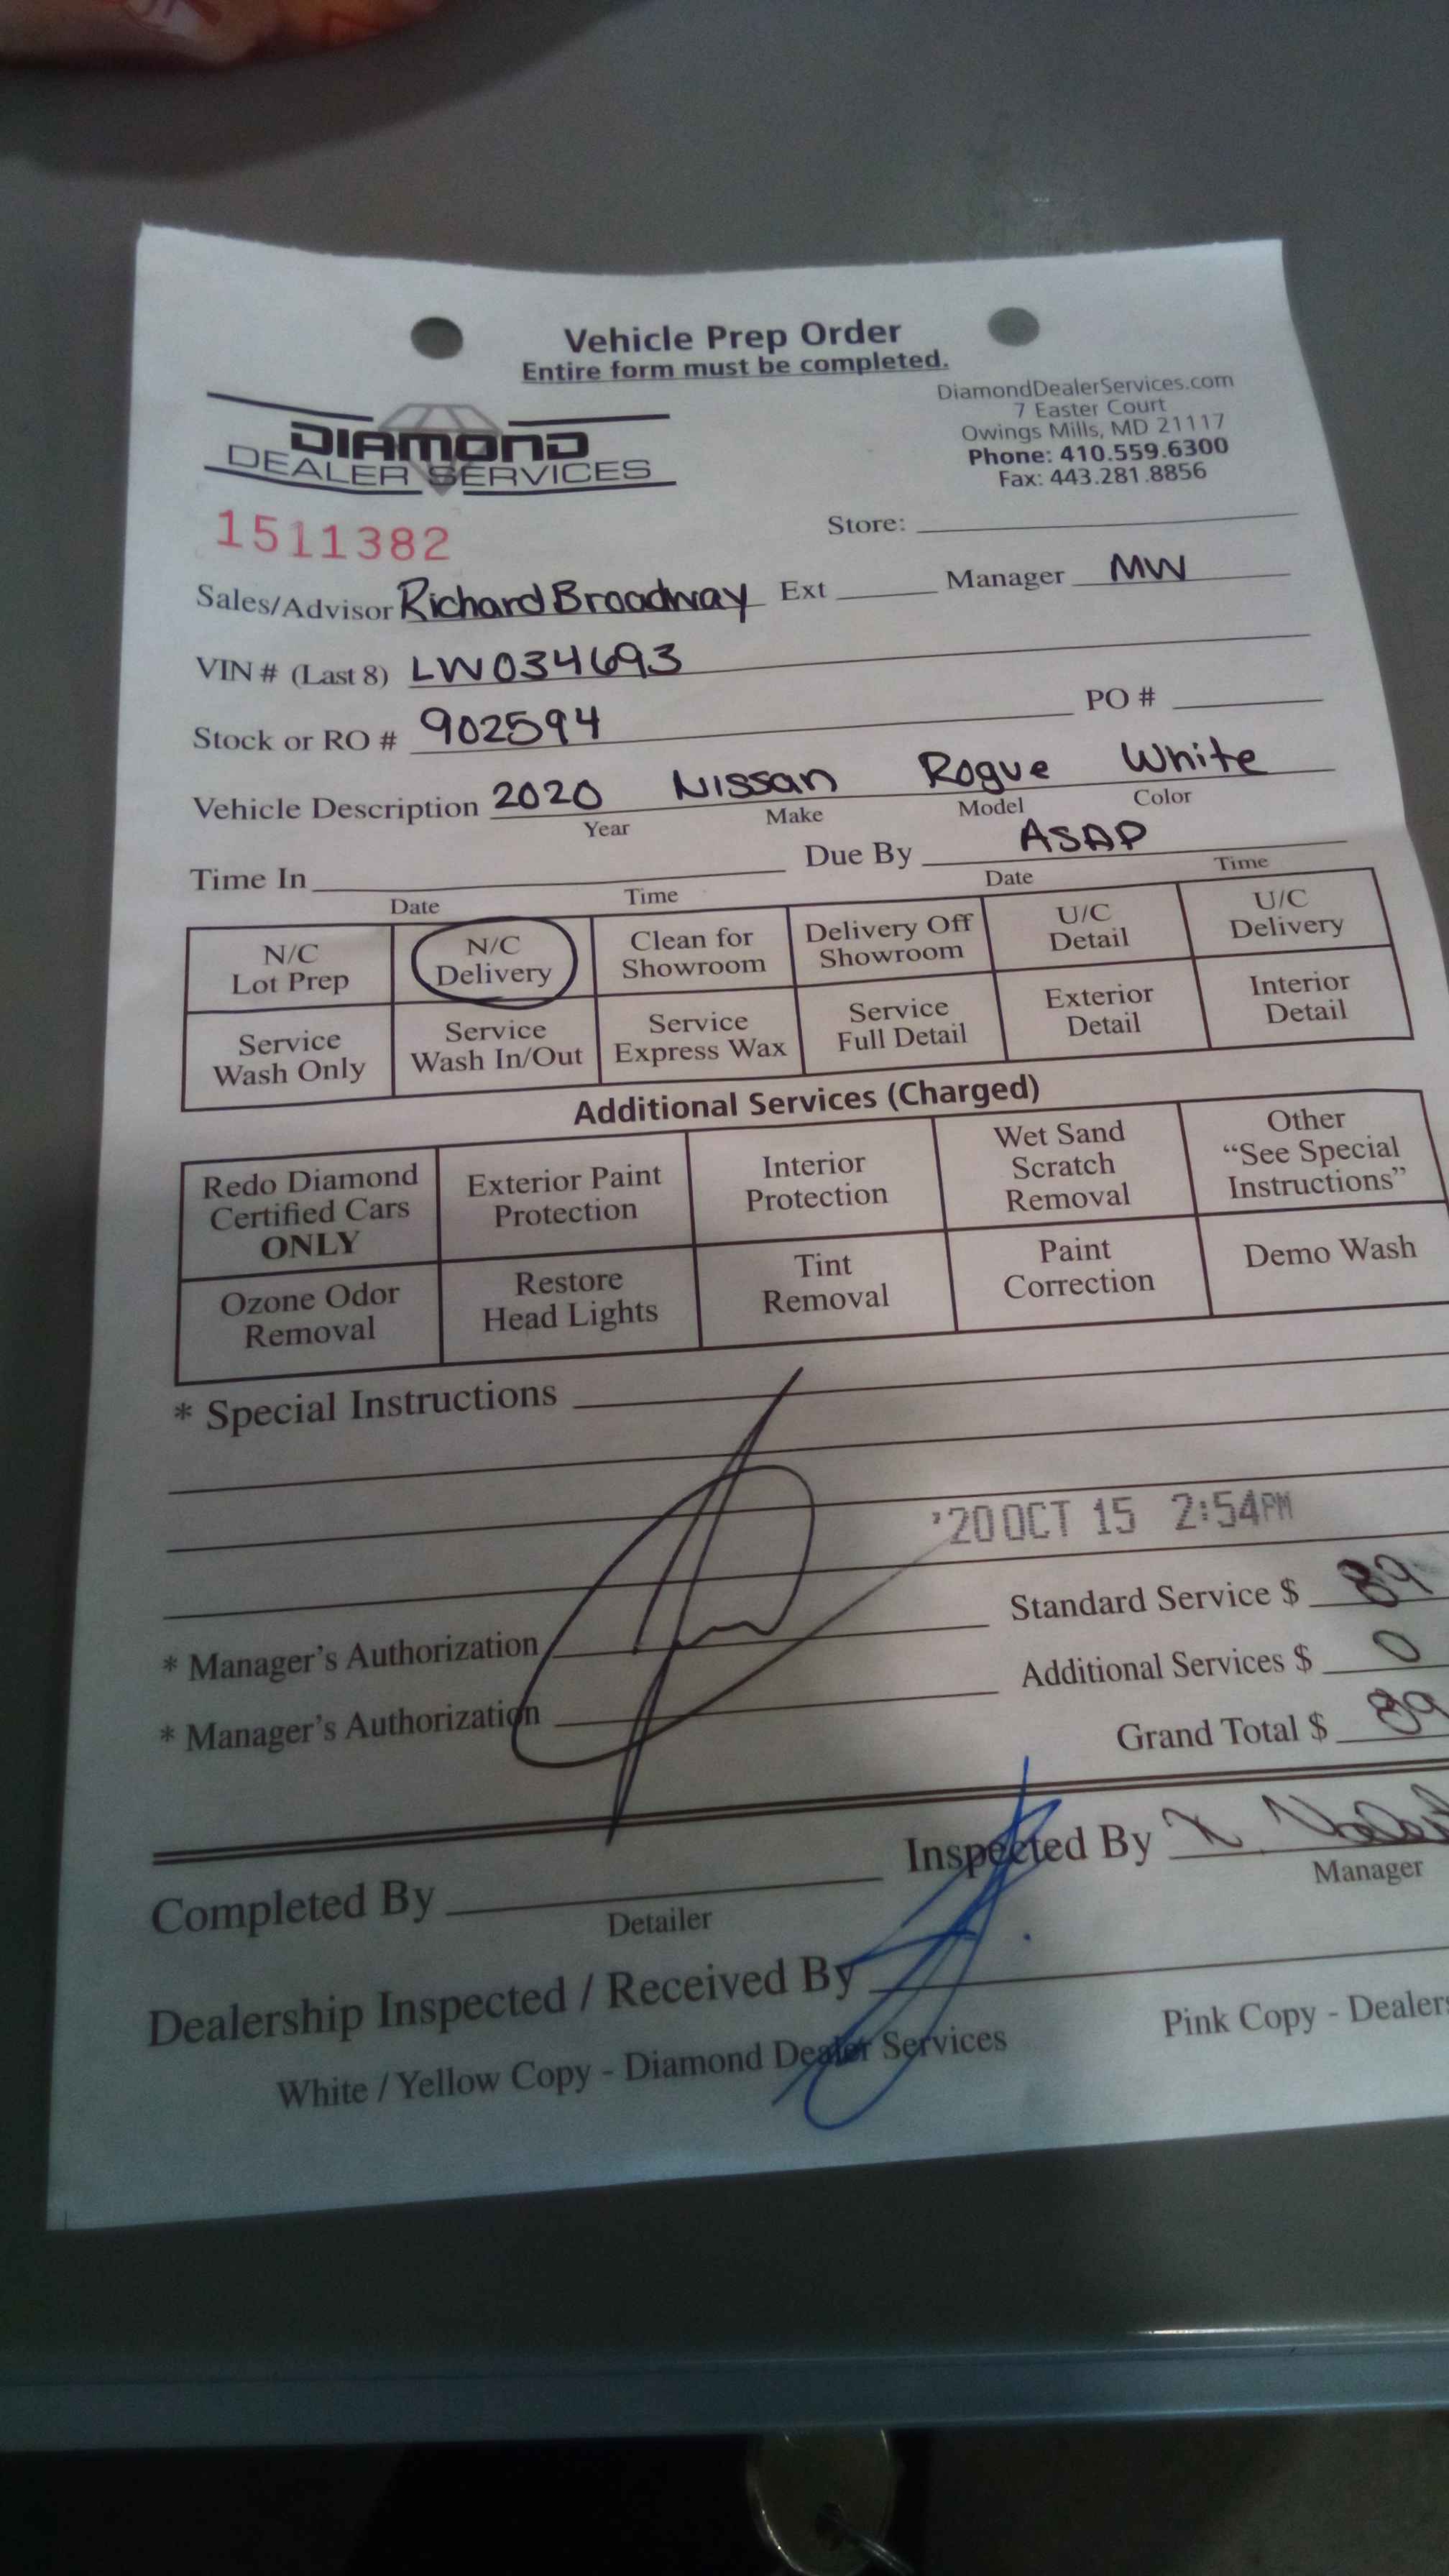 Vehicle Prep Order
Entire form must be completed.
DIAMOND
DEALER SERVICES
DiamondDealerServices.com
7 Easter Court
Owings Mills, MD 21117
Phone: 410.559.6300
Fax: 443.281.8856
1511382
Store:
Sales/Advisor Richard Broadway Ext Manager MW
VIN # (Last 8) LW034693
Stock or RO # 902594 PO #
Vehicle Description 2020 Nissan Rogue White
Year Make Model Color
Time In Due By ASAP
Date Time Date Time
N/C Lot Prep
N/C Delivery
Clean for Showroom
Delivery Off Showroom
U/C Detail
U/C Delivery
Service Wash Only
Service Wash In/Out
Service Express Wax
Service Full Detail
Exterior Detail
Interior Detail
Additional Services (Charged)
Redo Diamond Certified Cars ONLY
Exterior Paint Protection
Interior Protection
Wet Sand Scratch Removal
Other "See Special Instructions"
Ozone Odor Removal
Restore Head Lights
Tint Removal
Paint Correction
Demo Wash
* Special Instructions
'20 OCT 15 2:54PM
Standard Service $ 89
* Manager's Authorization
Additional Services $ 0
* Manager's Authorization
Grand Total $ 89
Completed By Inspected By
Detailer Manager
Dealership Inspected / Received By
White / Yellow Copy - Diamond Dealer Services Pink Copy -